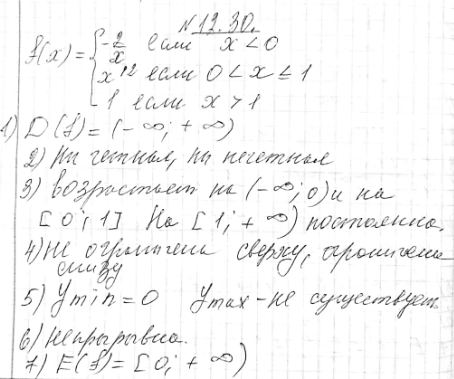 №12.30.
f(x) = { -2/x если x < 0
x¹² если 0 < x ≤ 1
1 если x > 1
1) D(f) = (-∞; +∞)
2) Ни четная, ни нечетная
3) возрастает на (-∞; 0) и на
[0; 1] На [1; +∞) постоянна.
4) не ограничена сверху, ограничена
снизу
5) Ymin = 0 Ymax - не существует
6) Непрерывна.
7) E(f) = [0; +∞)